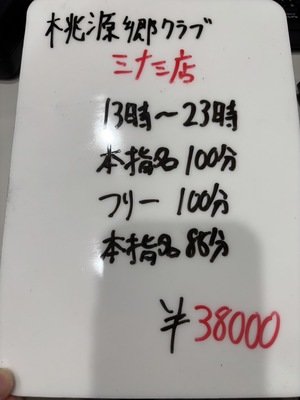 桃源郷クラブ
三十三店
13時～23時
本指名100分
フリー 100分
本指名 85分
¥38000